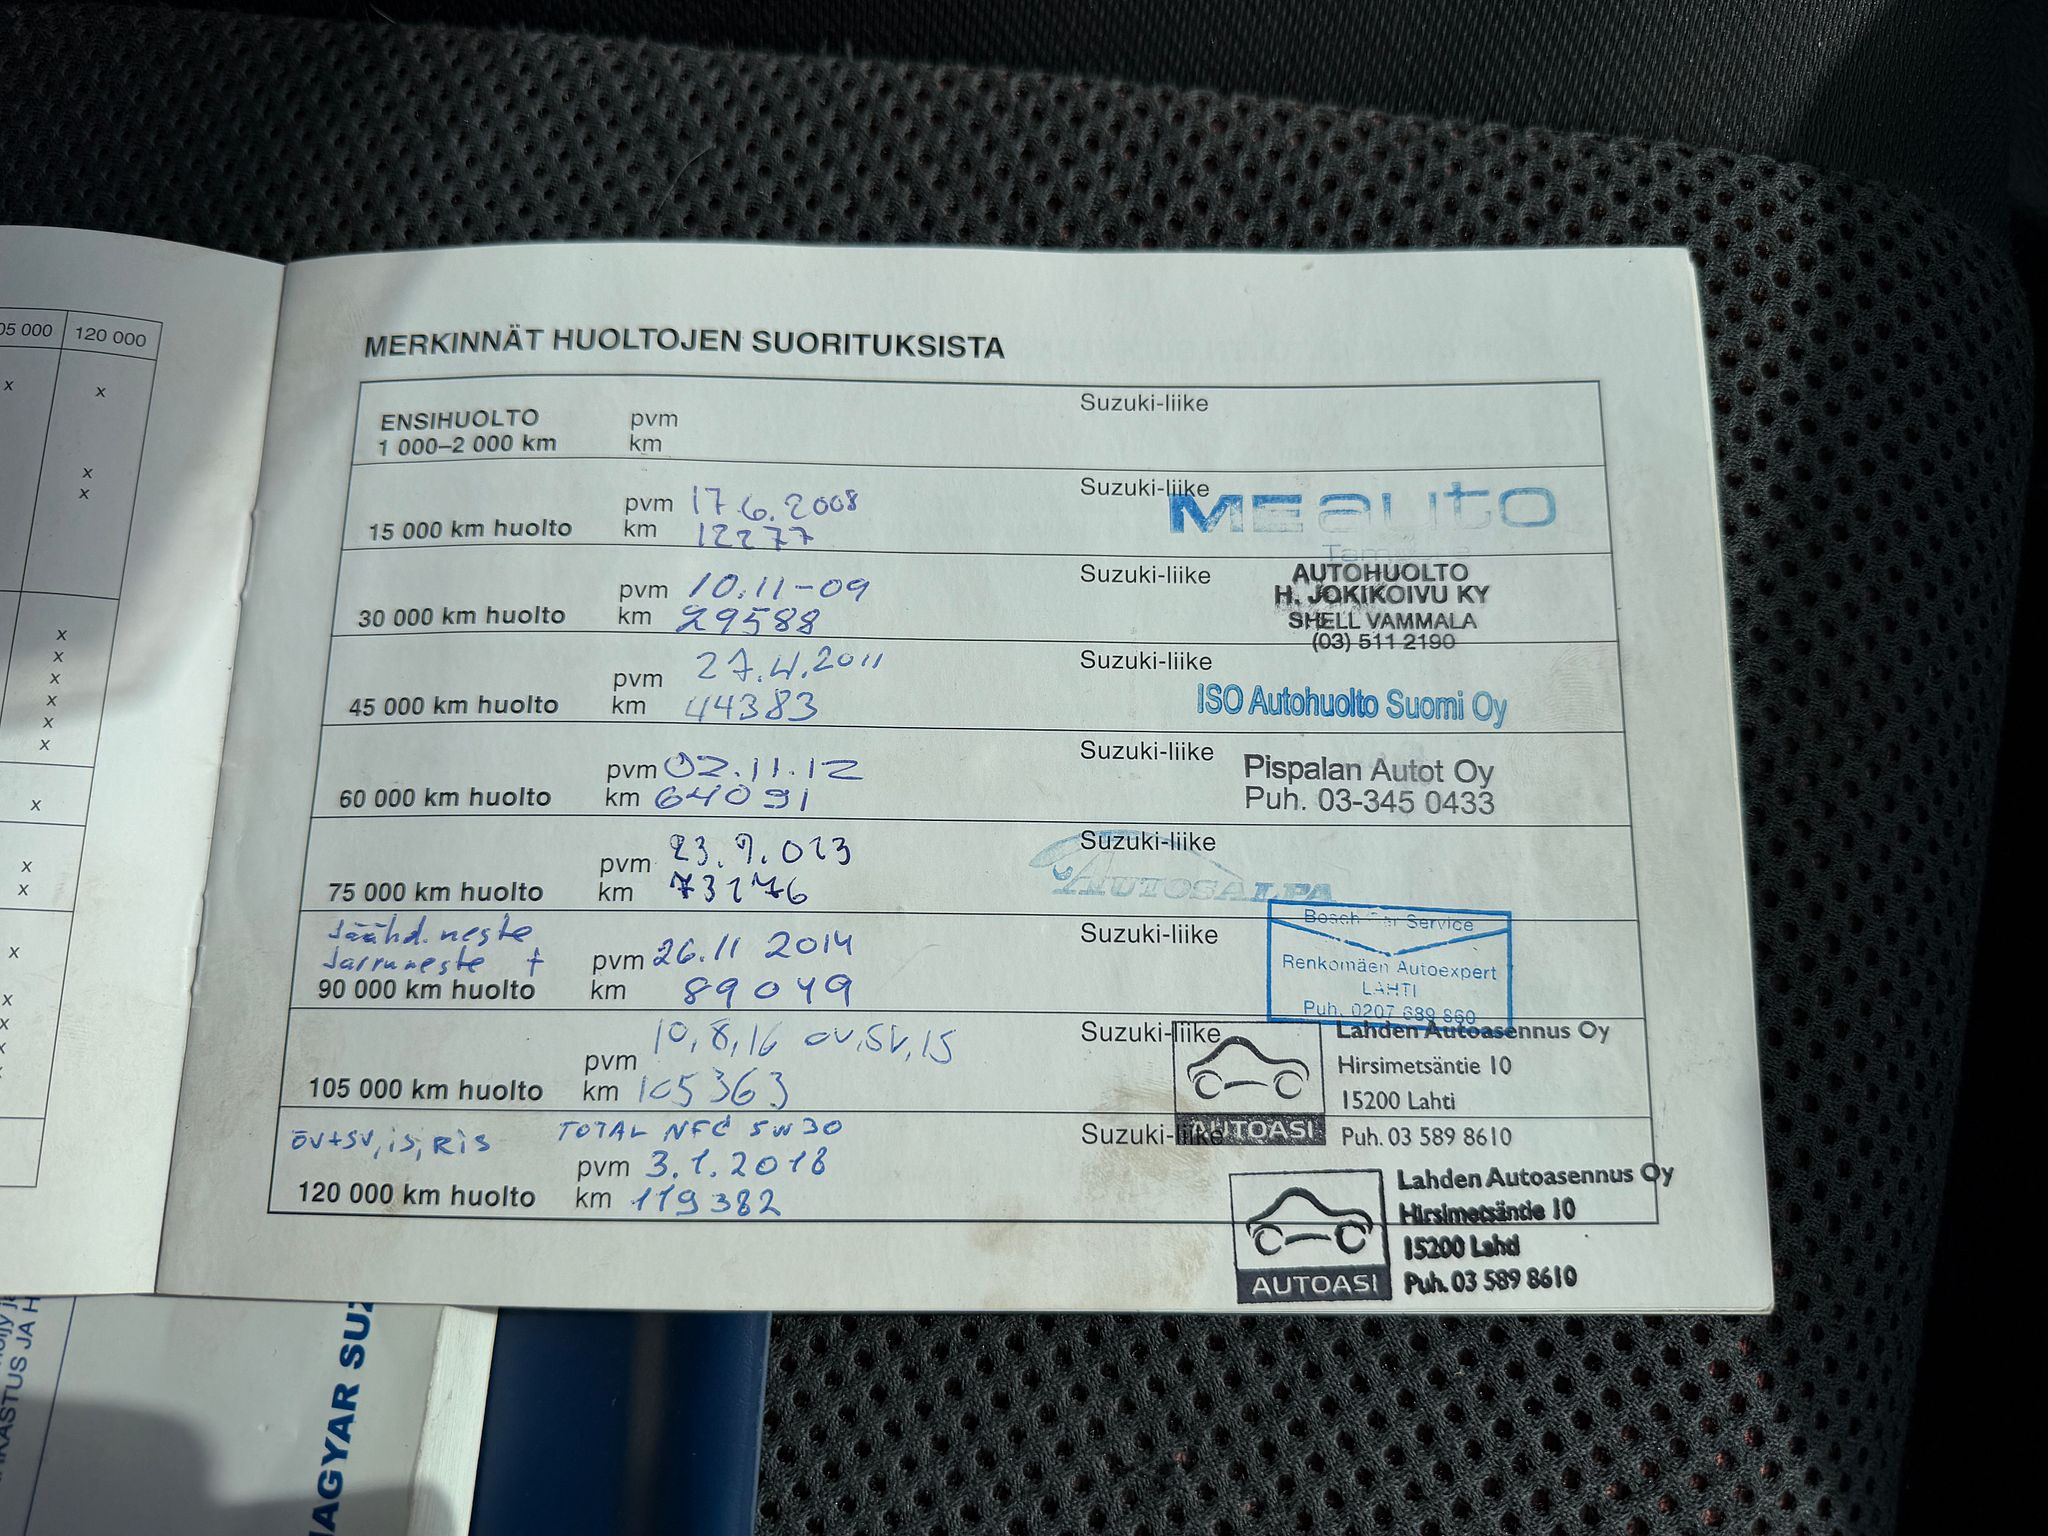 05 000 120 000
x x
x
x
x
x
x
x
x
x
x
x
x
x
x
MERKINNÄT HUOLTOJEN SUORITUKSISTA
ENSIHUOLTO pvm Suzuki-liike
1 000–2 000 km km
pvm 17.6.2008 Suzuki-liike MEauto
15 000 km huolto km 12277
pvm 10.11-09 Suzuki-liike AUTOHUOLTO
H. JOKIKOIVU KY
30 000 km huolto km 29588 SHELL VAMMALA
(03) 511 2190
pvm 27.4.2011 Suzuki-liike
45 000 km huolto km 44383 ISO Autohuolto Suomi Oy
pvm 02.11.12 Suzuki-liike Pispalan Autot Oy
60 000 km huolto km 64091 Puh. 03-345 0433
pvm 23.9.013 Suzuki-liike
75 000 km huolto km 73176 AUTOSALPA
Jäähd.neste Bosch Car Service
Jarruneste + pvm 26.11 2014 Suzuki-liike Renkomäen Autoexpert
LAHTI
90 000 km huolto km 89049 Puh. 0207 689 860
pvm 10,8,16 ov,sv,is Suzuki-liike Lahden Autoasennus Oy
Hirsimetsäntie 10
105 000 km huolto km 105363 15200 Lahti
AUTOASI Puh. 03 589 8610
öv+sv,is,Ris TOTAL NFC 5W30 Suzuki-liike
pvm 3.1.2018 Lahden Autoasennus Oy
120 000 km huolto km 119382 Hirsimetsäntie 10
15200 Lahti
AUTOASI Puh. 03 589 8610
MAGYAR SUZ
KASTUS JA H